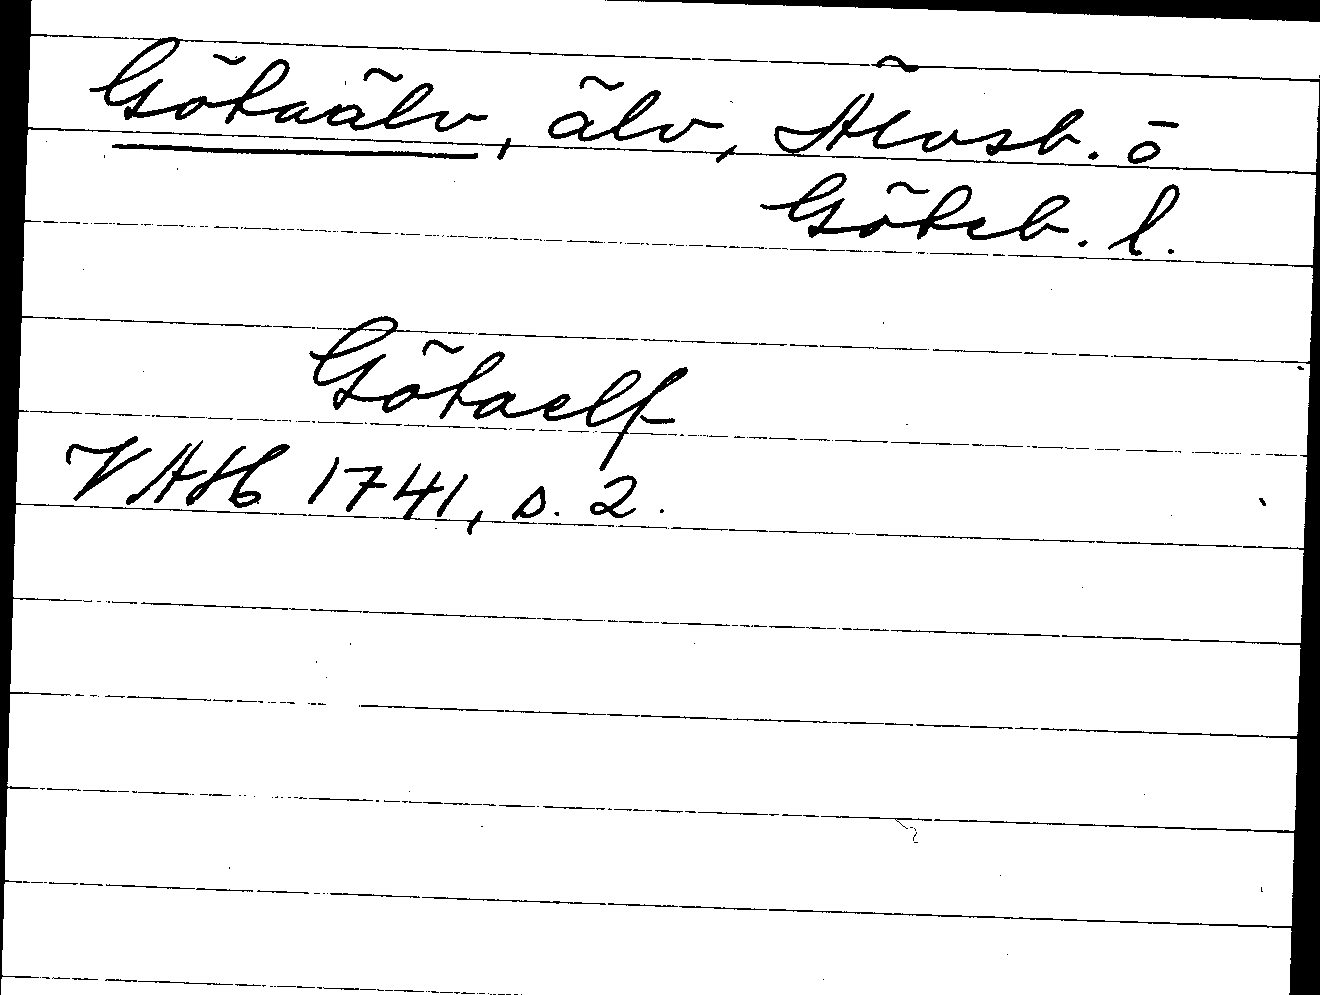 Götaälv, älv, Älvsb. o
Göteb. l.
Götaelf
VAH 1741, s. 2.